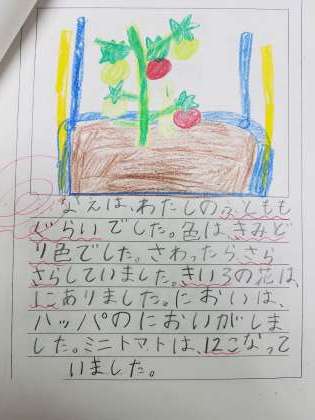 なえは、わたしのふともも
ぐらいでした。色は、きみど
り色でした。さわったら、さら
さらしていました。きいろの花は、
にありました。においは、
ハッパのにおいがしま
した。ミニトマトは、12こなって
いました。